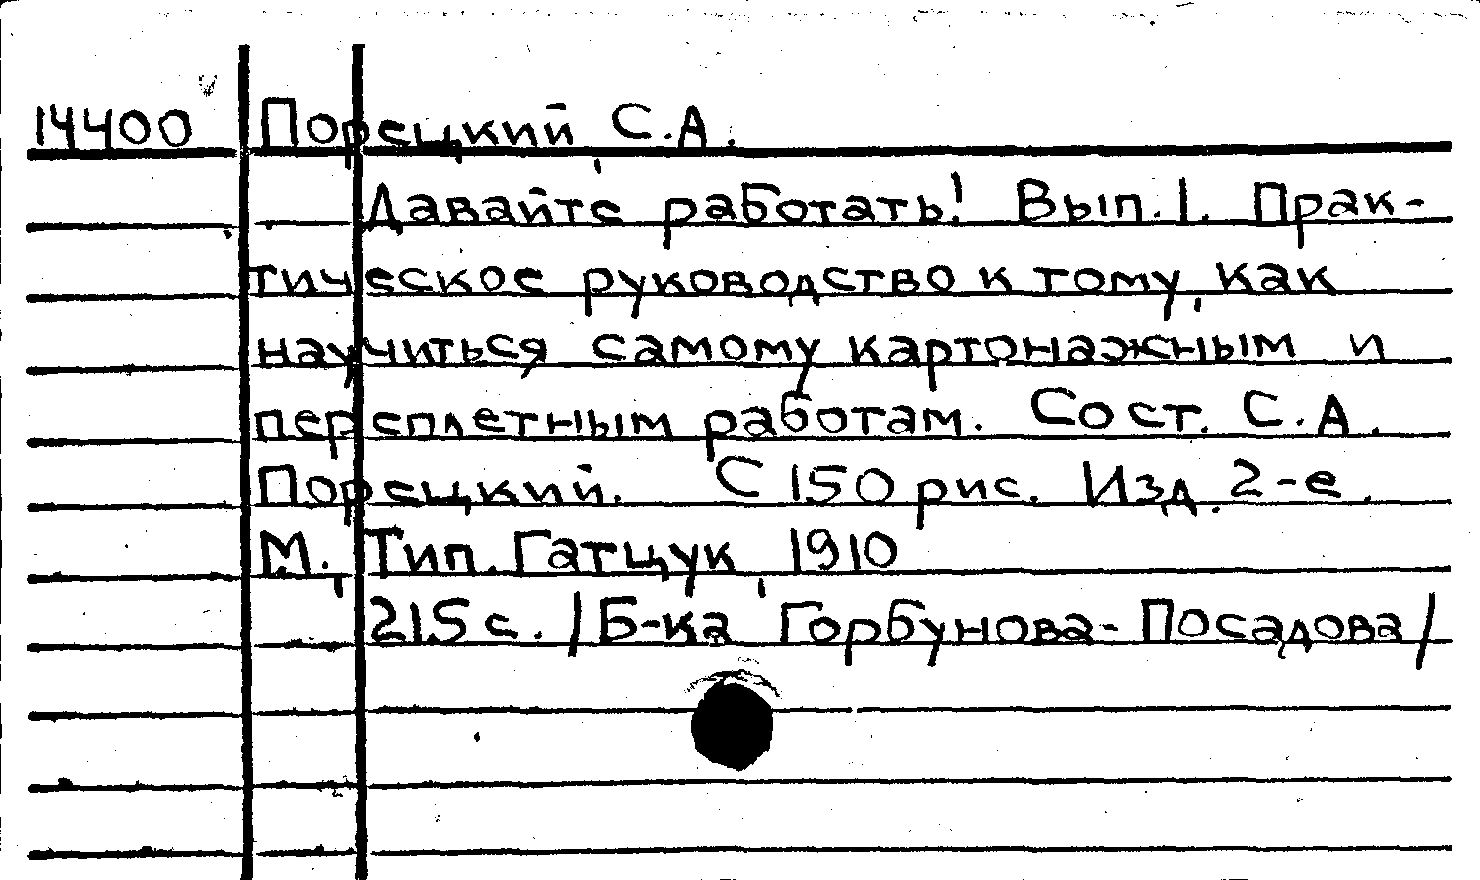 14400 Порецкий, С.А.
Давайте работать! Вып. 1. Прак-
тическое руководство к тому, как
научиться самому картонажным и
переплетным работам. Сост. С.А.
Порецкий. С 150 рис. Изд. 2-е.
М., Тип. Гатцук, 1910
215 с. /Б-ка Горбунова-Посадова/